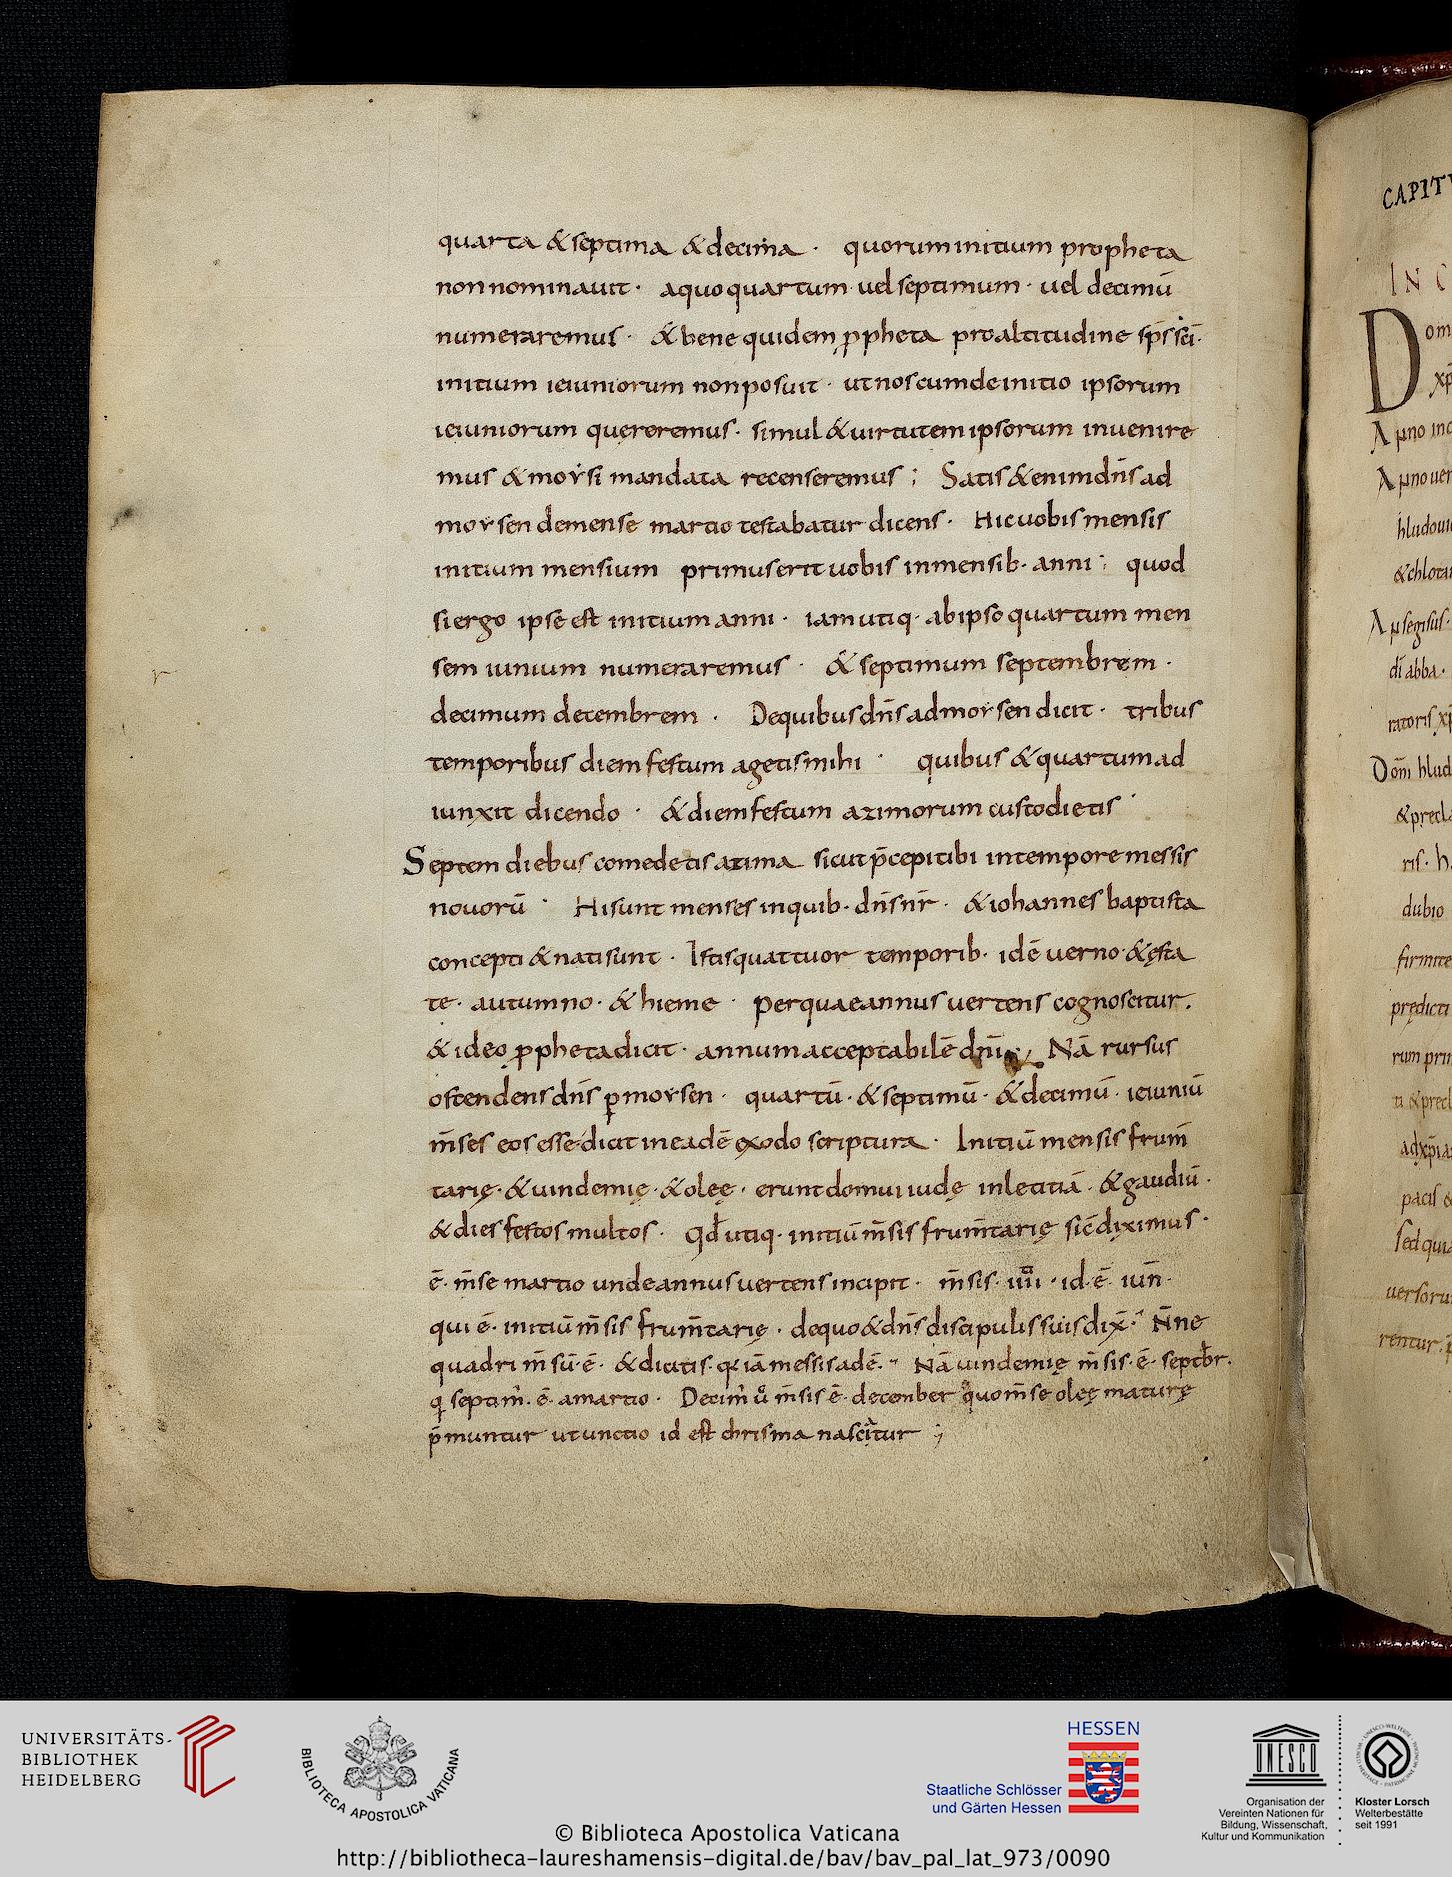 quarta & septima & decima · quorum initium propheta
non nominauit · a quo quartum uel septimum · uel decimū
numeraremus · & bene quidem ꝓpheta pro altitudine sp̄s sc̄i ·
initium ieiuniorum non posuit · ut nos cum de initio ipsorum
ieiuniorum quęreremus · simul & uirtutem ipsorum inuenire
mus & moẏsi mandata recenseremus ; Satis & enim dn̄s ad
moẏsen de mense martio testabatur dicens · Hic uobis mensis
initium mensium primus erit uobis in mensib· anni ; quod
si ergo ipse est initium anni · iam utiq· ab ipso quartum men
sem iunium numeraremus · & septimum septembrem ·
decimum decembrem · De quibus dn̄s ad moẏsen dicit · tribus
temporibus diem festum agetis mihi · quibus & quartum ad
iunxit dicendo · & diem festum azimorum custodietis ·
Septem diebus comedetis azima sicut p̄cepi tibi in tempore messis
nouorū · Hi sunt menses in quib· dn̄s nr̄ · & iohannes baptista
concepti & nati sunt · Istis quattuor temporib· idē uerno · & ęsta
te · autumno · & hieme · per quae annus uertens cognoscitur .
& ideo ꝓpheta dicit · annum acceptabilē dn̄i · Nā rursus
ostendens dn̄s ꝑ moẏsen · quartū · & septimū · & decimū · ieiuniū
m̄ses eos esse dicit in eadē exodo scriptura · Initiū mensis frum̄
tarię · & uindemię · & oleę · erunt domui iudę in letitiā · & gaudiū ·
& dies festos multos · Qd̄ utiq· initiū m̄sis frum̄tarię sic̄ diximus ·
ē · m̄se martio unde annus uertens incipit · m̄sis · iiii · id · ē · iun̄ ·
qui ē · initiū m̄sis frum̄tarię · de quo & dn̄s discipulis suis dix̄ · N̄ne
quadrim̄sū · ē · & dicitis · q iā messis adē · Nā uindemię m̄sis · ē · septb̄r ·
q septim̄ · ē · a martio · Decim̄ u m̄sis ē · december quo m̄se oleę maturę
p̄muntur ut unctio id est chrisma nascitur ;
CAPIT
IN C
Dom
xp̄
hludoui
& chlotar
dī abba ·
& pręcl
dubio
firmite
prędicti
rum prin
pacis &
Sed quia
uersoru
rentur ·
UNIVERSITÄTS-
BIBLIOTHEK
HEIDELBERG
BIBLIOTECA APOSTOLICA VATICANA
HESSEN
Staatliche Schlösser
und Gärten Hessen
UNESCO
Organisation der
Vereinten Nationen für
Bildung, Wissenschaft,
Kultur und Kommunikation
Kloster Lorsch
Welterbestätte
seit 1991
© Biblioteca Apostolica Vaticana
http://bibliotheca-laureshamensis-digital.de/bav/bav_pal_lat_973/0090